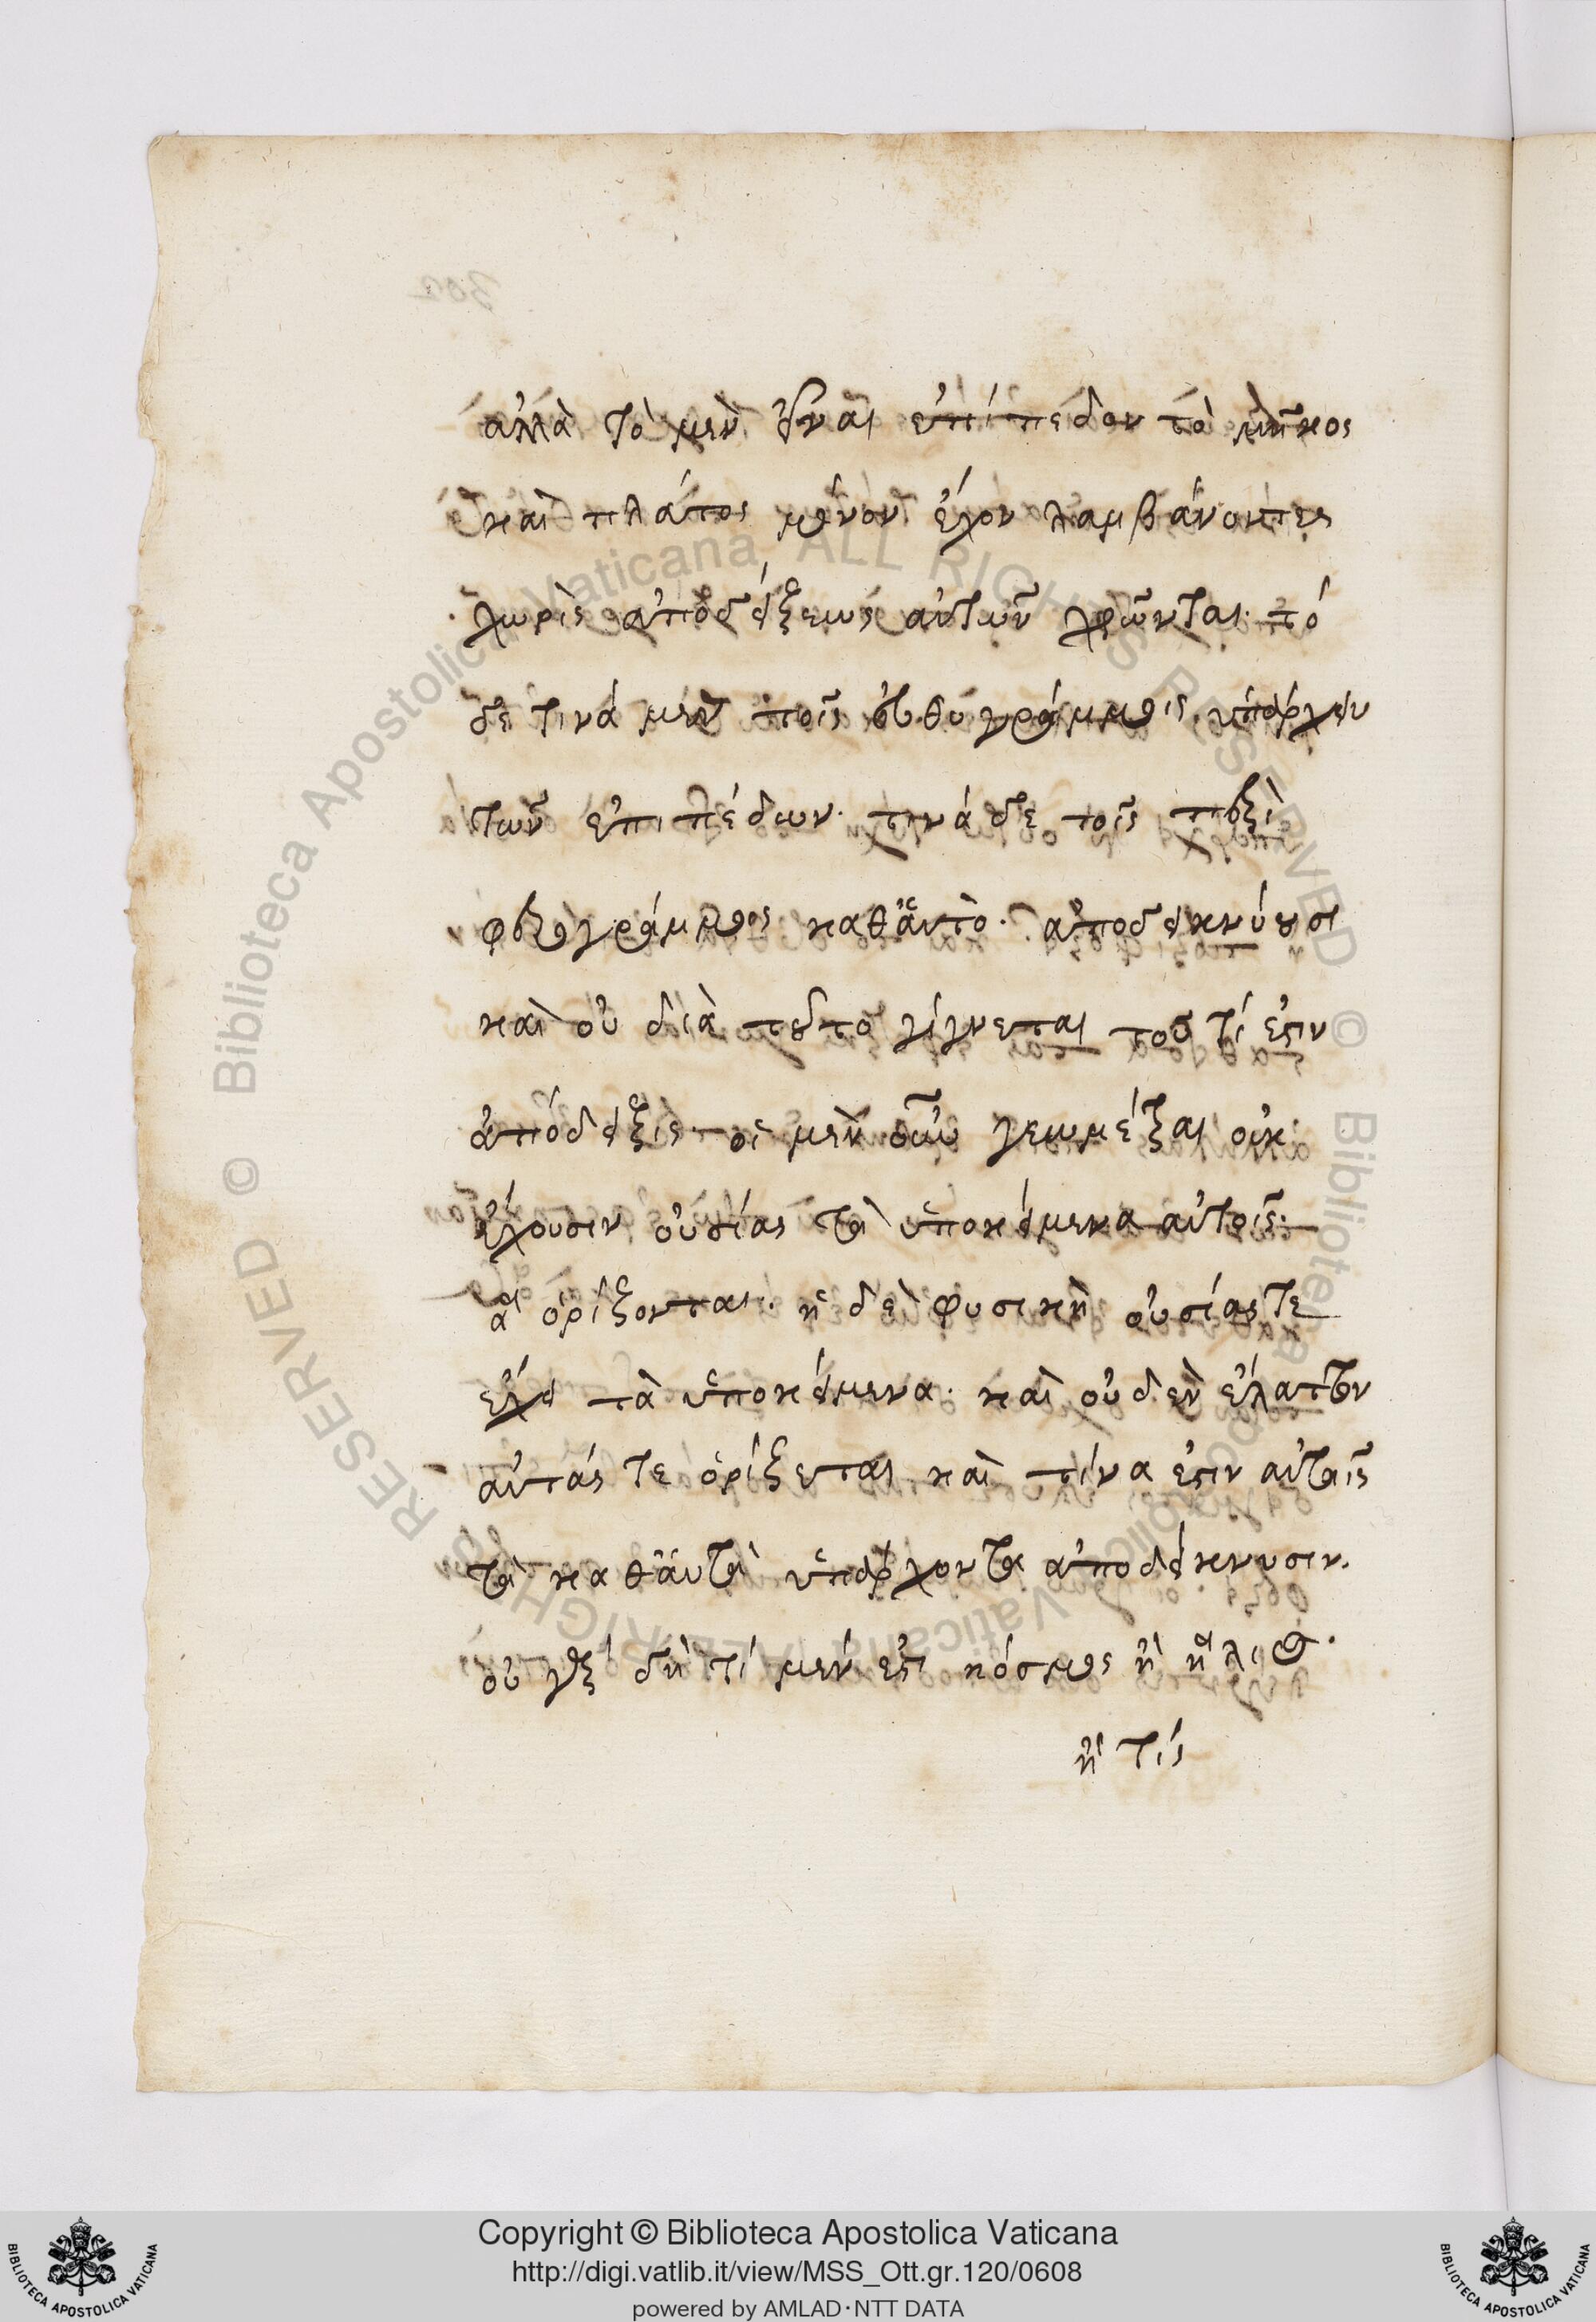 ἀλλὰ τὸ μὲν εἶναι ἐπίπεδον τὸ μῆκος
καὶ πλάτος μόνον ἔχον λαμβάνοντες
χωρὶς ἀποδείξεως αὐτῶν χρῶνται· τό
δὲ τινά μὲν τοῖς εὐθυγράμμοις ὑπάρχειν
τῶν ἐπιπέδων· τινά δὲ τοῖς
καθ᾽ αὑτὸ· ἀποδεικνύουσι
καὶ οὐ διὰ τοῦτο γίγνεται τοῦ τί ἐστιν
ἀπόδειξις· οἱ μὲν οὖν γεωμέτραι οὐκ
ἔχουσιν οὐσίας τὰ ὑποκείμενα αὐτοῖς·
ἃ ὁρίζονται· ἡ δὲ φυσικὴ οὐσίας τε
ἔχει τὰ ὑποκείμενα· καὶ οὐδὲν ἔλαττον
αὐτάς τε ὁρίζεται καὶ τίνα ἐστιν αὐταῖς
τὰ καθ᾽ αὑτὰ ὑπάρχοντα ἀποδείκνυσιν.
οὐ γὰρ δὴ τί μέν ἐστι κόσμος ἢ ἥλιος·
ἢ τίς
Copyright © Biblioteca Apostolica Vaticana
http://digi.vatlib.it/view/MSS_Ott.gr.120/0608
powered by AMLAD·NTT DATA
BIBLIOTECA APOSTOLICA VATICANA
BIBLIOTECA APOSTOLICA VATICANA